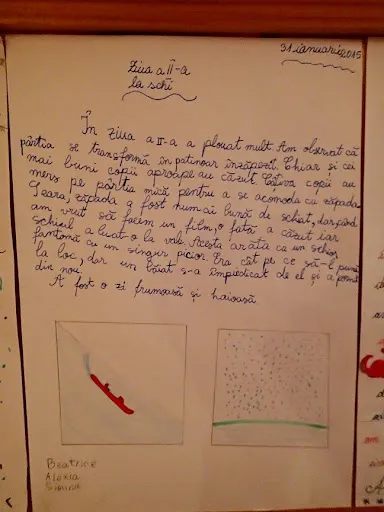 31 ianuarie 2015
Ziua a II-a
la schi
În ziua a II-a a plouat mult. Am observat că
pârtia se transformă în patinoar înzăpezit. Chiar și cei
mai buni copii aproape au căzut. Câțiva copii au
mers pe pârtia mică pentru a se acomoda cu zăpada.
Seara, zăpada a fost numai bună de schiat, dar când
am vrut să facem un film, o fată a căzut iar
schiul a luat-o la vale. Acesta arăta ca un schior
fantomă cu un singur picior. Era cât pe ce să-l punem
la loc, dar un băiat s-a împiedicat de el și a pornit
din nou.
A fost o zi frumoasă și haioasă
Beatrice
Alexia